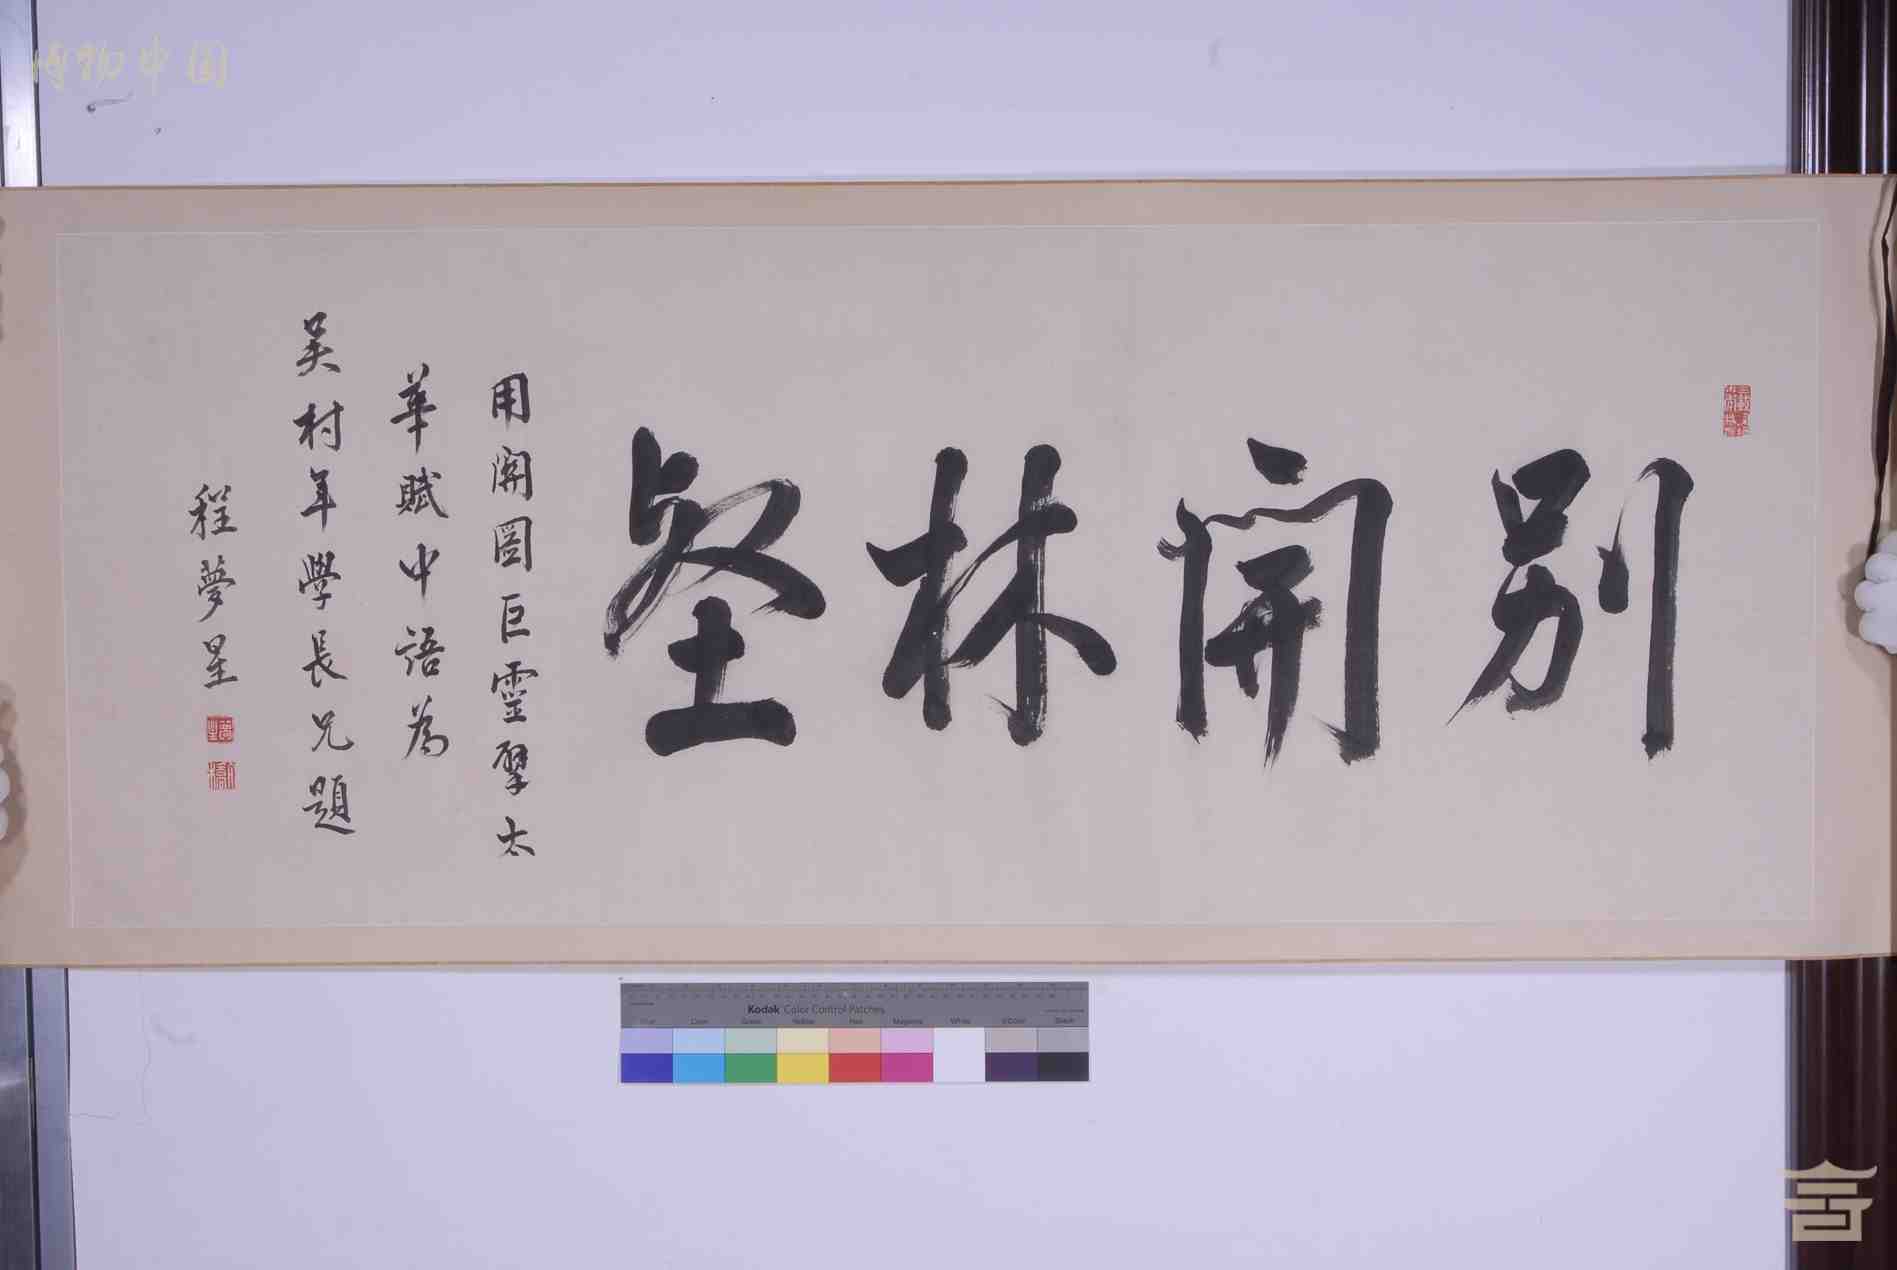 博物中国
別開林壑
用關圖巨靈擘太
華賦中語為
吴村年學長兄題
程夢星
Kodak Color Control Patches
Blue Cyan Green Yellow Red Magenta White 3/Color Black